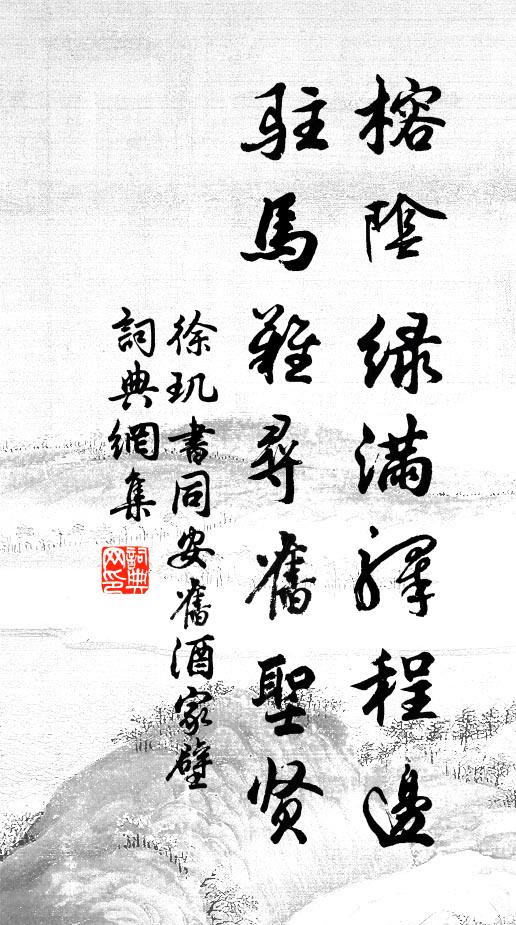 榕陰緑滿驛程邊
駐馬難尋舊聖賢
徐玑書同安舊酒家壁
詞典網集
詞典网印